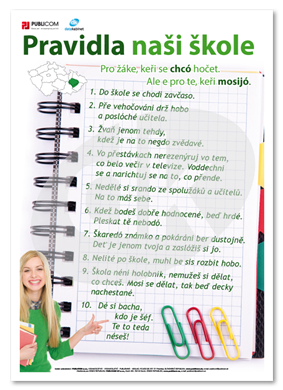 PUBLICOM
Pravidla naši škole
Pro žáke, keři se chcó hočet.
Ale e pro te, keři mosijó.
1. Do škole se chodí zavčaso.
2. Pře vehočování drž hobo
a poslóché učitela.
3. Žvaň jenom tehdy,
když je na to negdo zvědavé.
4. Vo přestávkách nerezenýruj vo tem,
co belo večír v televize. Voddechni
se a narichtuj se na to, co přende.
5. Nedělé si srando ze spolužáků a učitelů.
Na to máš sebe.
6. Kdež bodeš dobře hodnocené, beď hrdé.
Pleskat tě nebodó.
7. Škaredó známko a pokárání ber dustojně.
Deť je jenom tvoja a zaslóžíš si jo.
8. Nelité po škole, muhl be sis rozbit hobo.
9. Škola néni holobnik, nemužeš si dělat,
co chceš. Mosí se dělat, tak beď decky
nachestané.
10. Dé si bacha,
kdo je šéf.
Te to teda
néseš!